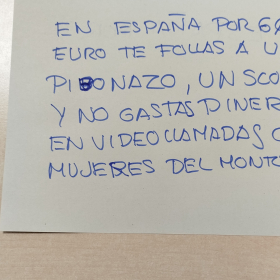 EN ESPAÑA POR 60
EURO TE FOLLAS A U
PIBONAZO, UN SCO
Y NO GASTAS DINER
EN VIDEO LLAMADAS C
MUJERES DEL MONTO